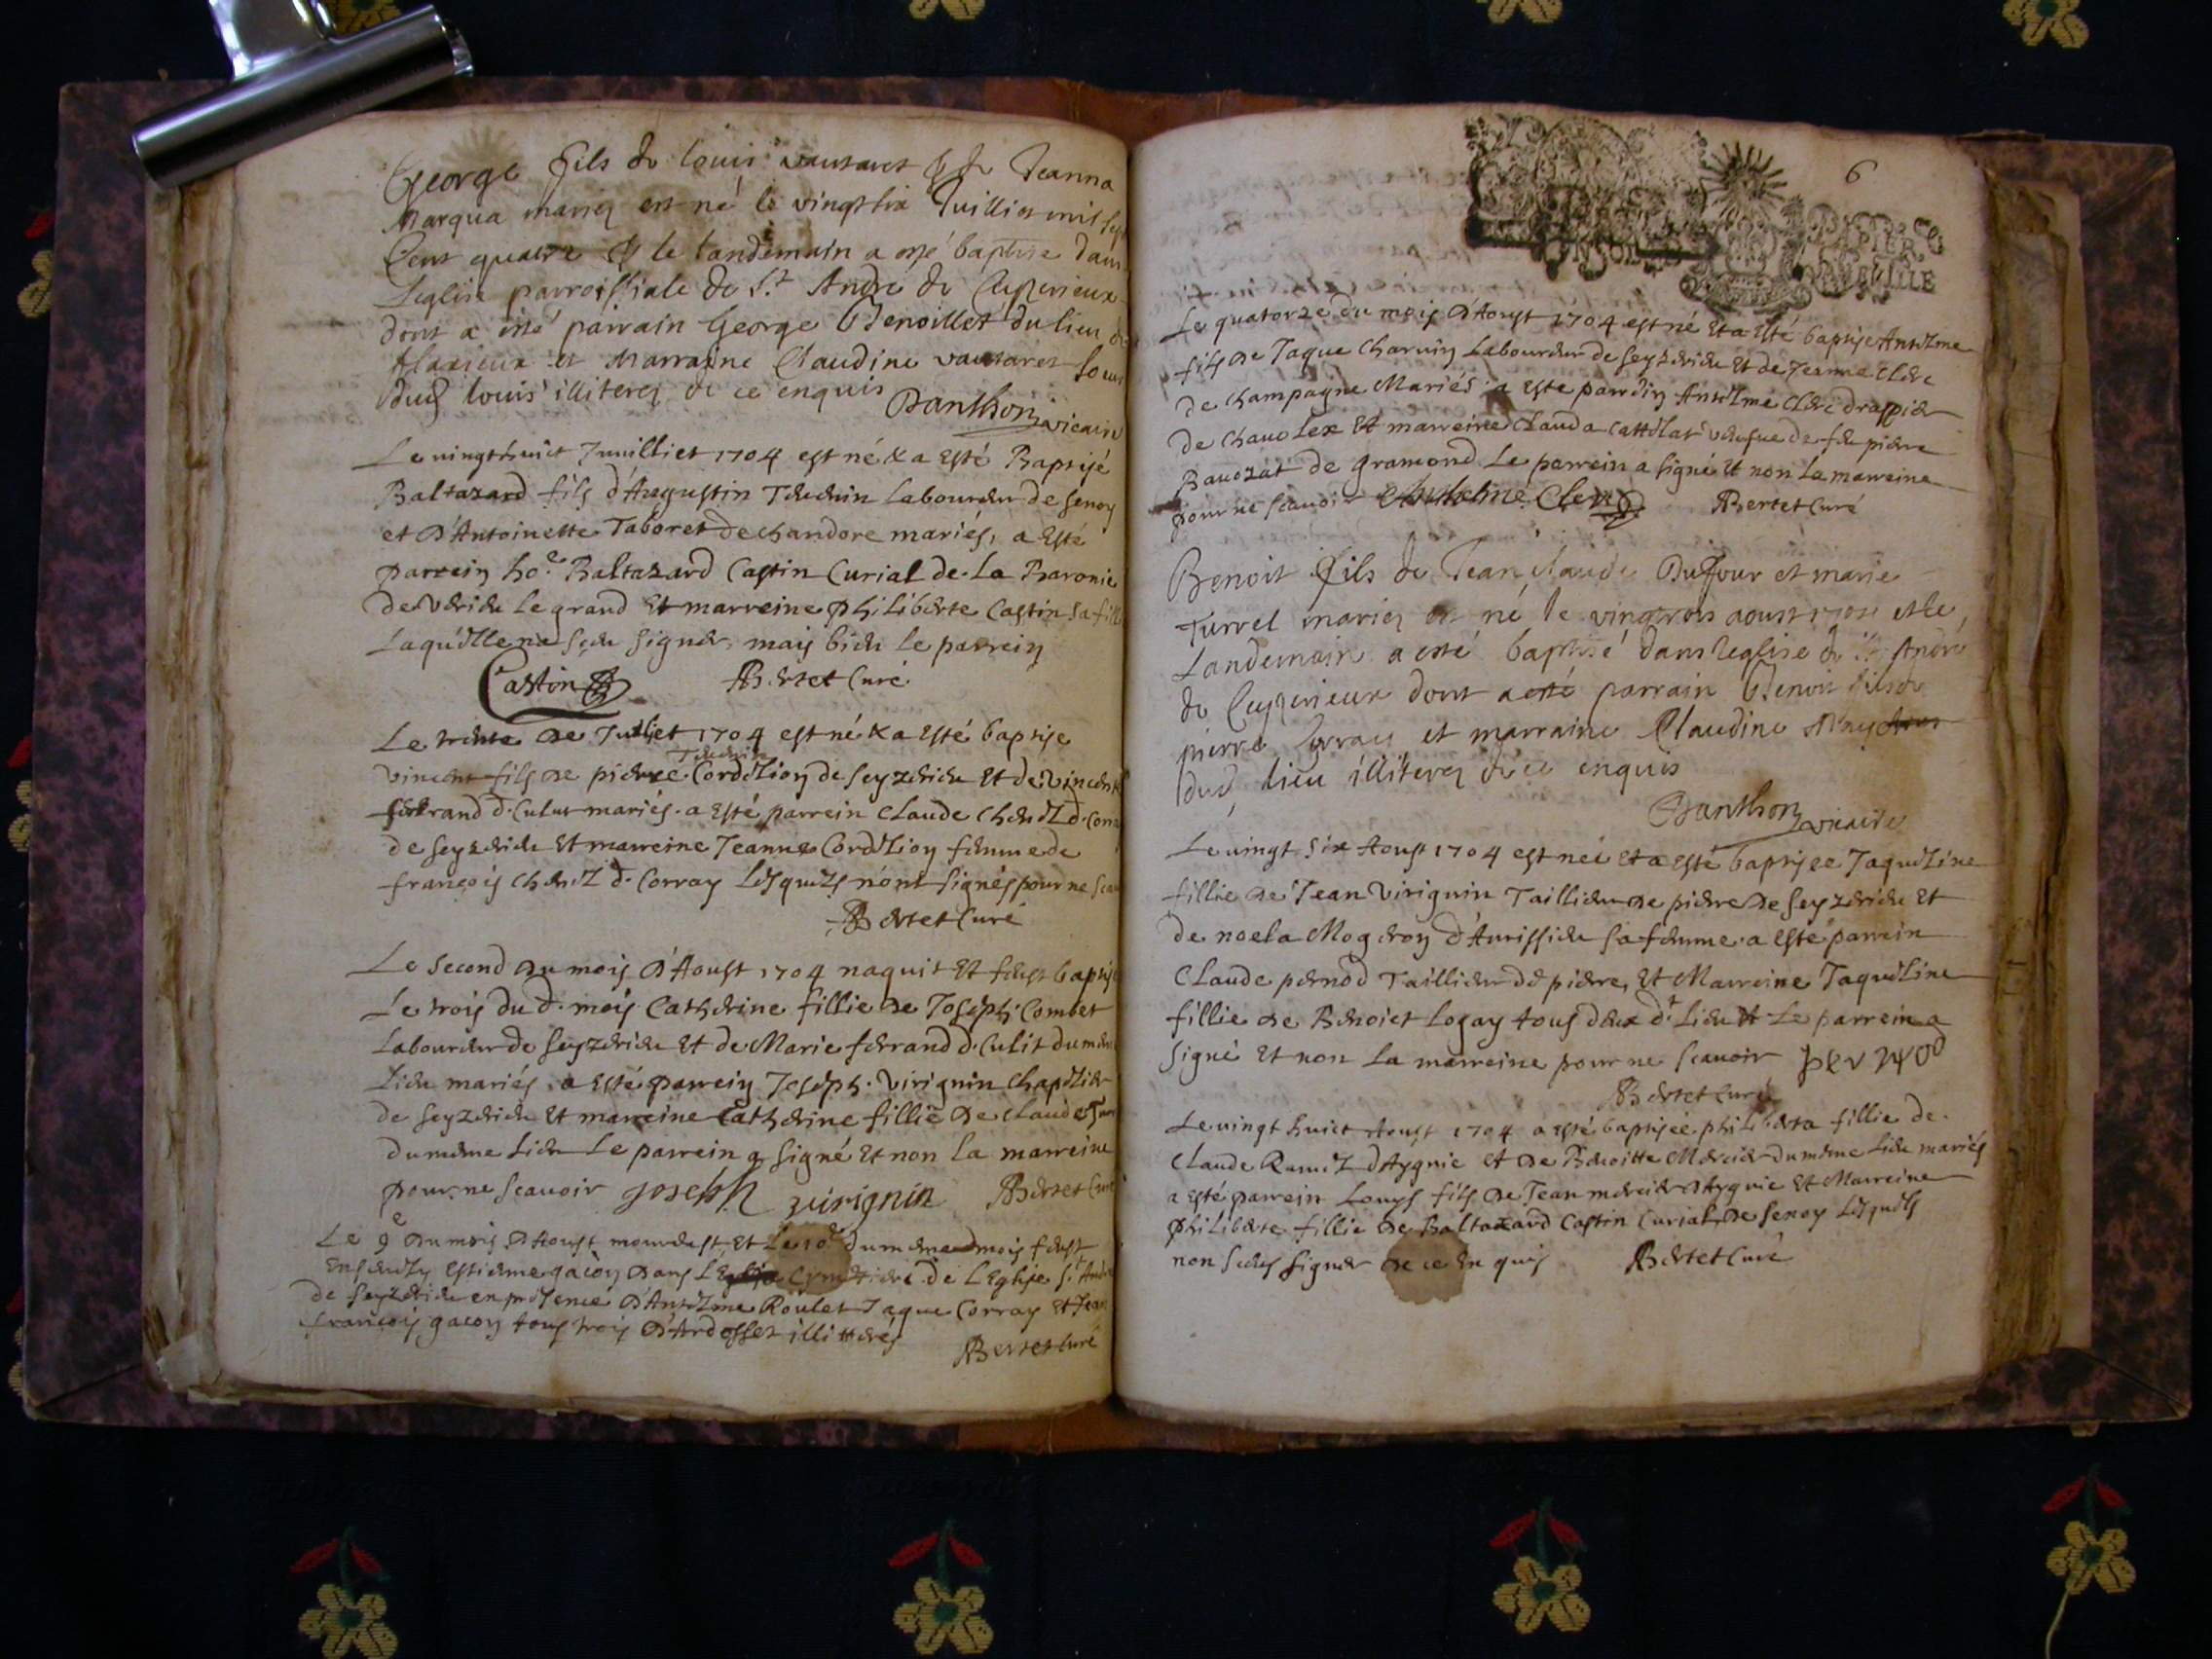 George fils de louis vautaret & de Jeanna
Marqua mariez est né le vingt six Juillier mil sept
Cent quatre & le landemain a esté baptise dans
Leglise parroissiale de S.t André de Ceyzerieux
dont a esté parrain George Benoillet du lieu de
et Marraine Claudine vautaret soeur
dud louis illiterez de ce enquis Danthon vicaire
Le uingt huict Juuilliet 1704 est né & a Esté Baptisé
Baltazard fils d'Augustin Techin Laboureur de senoy
et D'Antoinette Taboret de chandore mariés, a Esté
parrein ho.e Baltazard Castin Curial de La Baronie
de Verieu Le grand Et marreine philiberte Castin sa fille
Laquelle ne sçeu signer, mais bien Le parrein
Castin ABertet Curé
Le trente de Juilliet 1704 est né & a Esté baptise
Vincent fils de pierre Cordelion de seyzerieu Et de Vincente
ferrand d. Culus mariés. a Esté parrein Claude d. Corray
de seyzerieu Et marreine Jeanne Cordelion femme de
françois d. Corray Lesquels n'ont signés pour ne scau
ABertet Curé
Le second du mois D'Aoust 1704 naquit Et feust baptise
Le trois du d. mois Catherine fillie de Joseph Combet
Laboureur de seyzerieu Et de Marie ferrand d. Culit du me
Lieu mariés. a Esté parrein Joseph. Virignin Chapelier
de seyzerieu Et marreine Catherine fillie de Claude
du meme Lieu Le parrein a signé Et non La marreine
pour ne scauoir joseph uirignin ABertet Curé
Le 9e du mois D'Aoust mourust Et Le 10e du meme mois feust
Enseuely Estienne gacon dans L'Eglise Cymetiere de L'Eglise S.t André
de seyzerieu en presence D'Antelme Roulet Jaque Corray Et Jean
françois gacon tous trois D'Ardosset illitterés
ABertet Curé
6
PAPIER
Le quatorze du mois D'Aoust 1704 est né Et a Esté baptise Antelme
fils de Jaque Charuin Laboureur de seyzerieu Et de Jeanne Clerc
de Champagne Mariés. a Este parrein Antelme Clerc drappier
de Chauolex Et marreine Clauda Cattelat veufue de feu pierre
Bauozat de gramond Le parrein a signé Et non La marreine
pour ne scauoir Anthelme Clerc ABertet Curé
Benoit fils de Jean claude Dufour et marie
Turrel mariez est né le vingtrois aoust 1704 et le
Landemain a esté baptisé dans leglise de S.t André
de Ceyzerieux dont a esté parrain Benoit fils de
pierre Corray et marraine Claudine
dud lieu illiterez de ce enquis
Danthon vicaire
Le uingt six Aoust 1704 est neé Et a Esté baptisee Jaqueline
fillie de Jean Virignin Taillieur de pierre de seyzerieu Et
de noela Mogeron d'Aurissieu sa femme. a Esté parrein
Claude pernod Taillieur de pierre, Et Marreine Jaqueline
fillie de Benoict Logay tous deux d.t Lieu Et Le parrein a
signé Et non La marreine pour ne scauoir per nod
ABertet Curé
Le uingt huict Aoust 1704 a esté baptiseé philiberta fillie de
Claude Ramel d'Aygnie Et de Benoitte Mercier du meme Lieu mariés
a Esté parrein Louys fils de Jean mercier d'Aygnie Et Marreine
philiberte fillie de Baltazard Castin Curial de senoy Lesquels
non sceus signer de ce En quis ABertet Curé